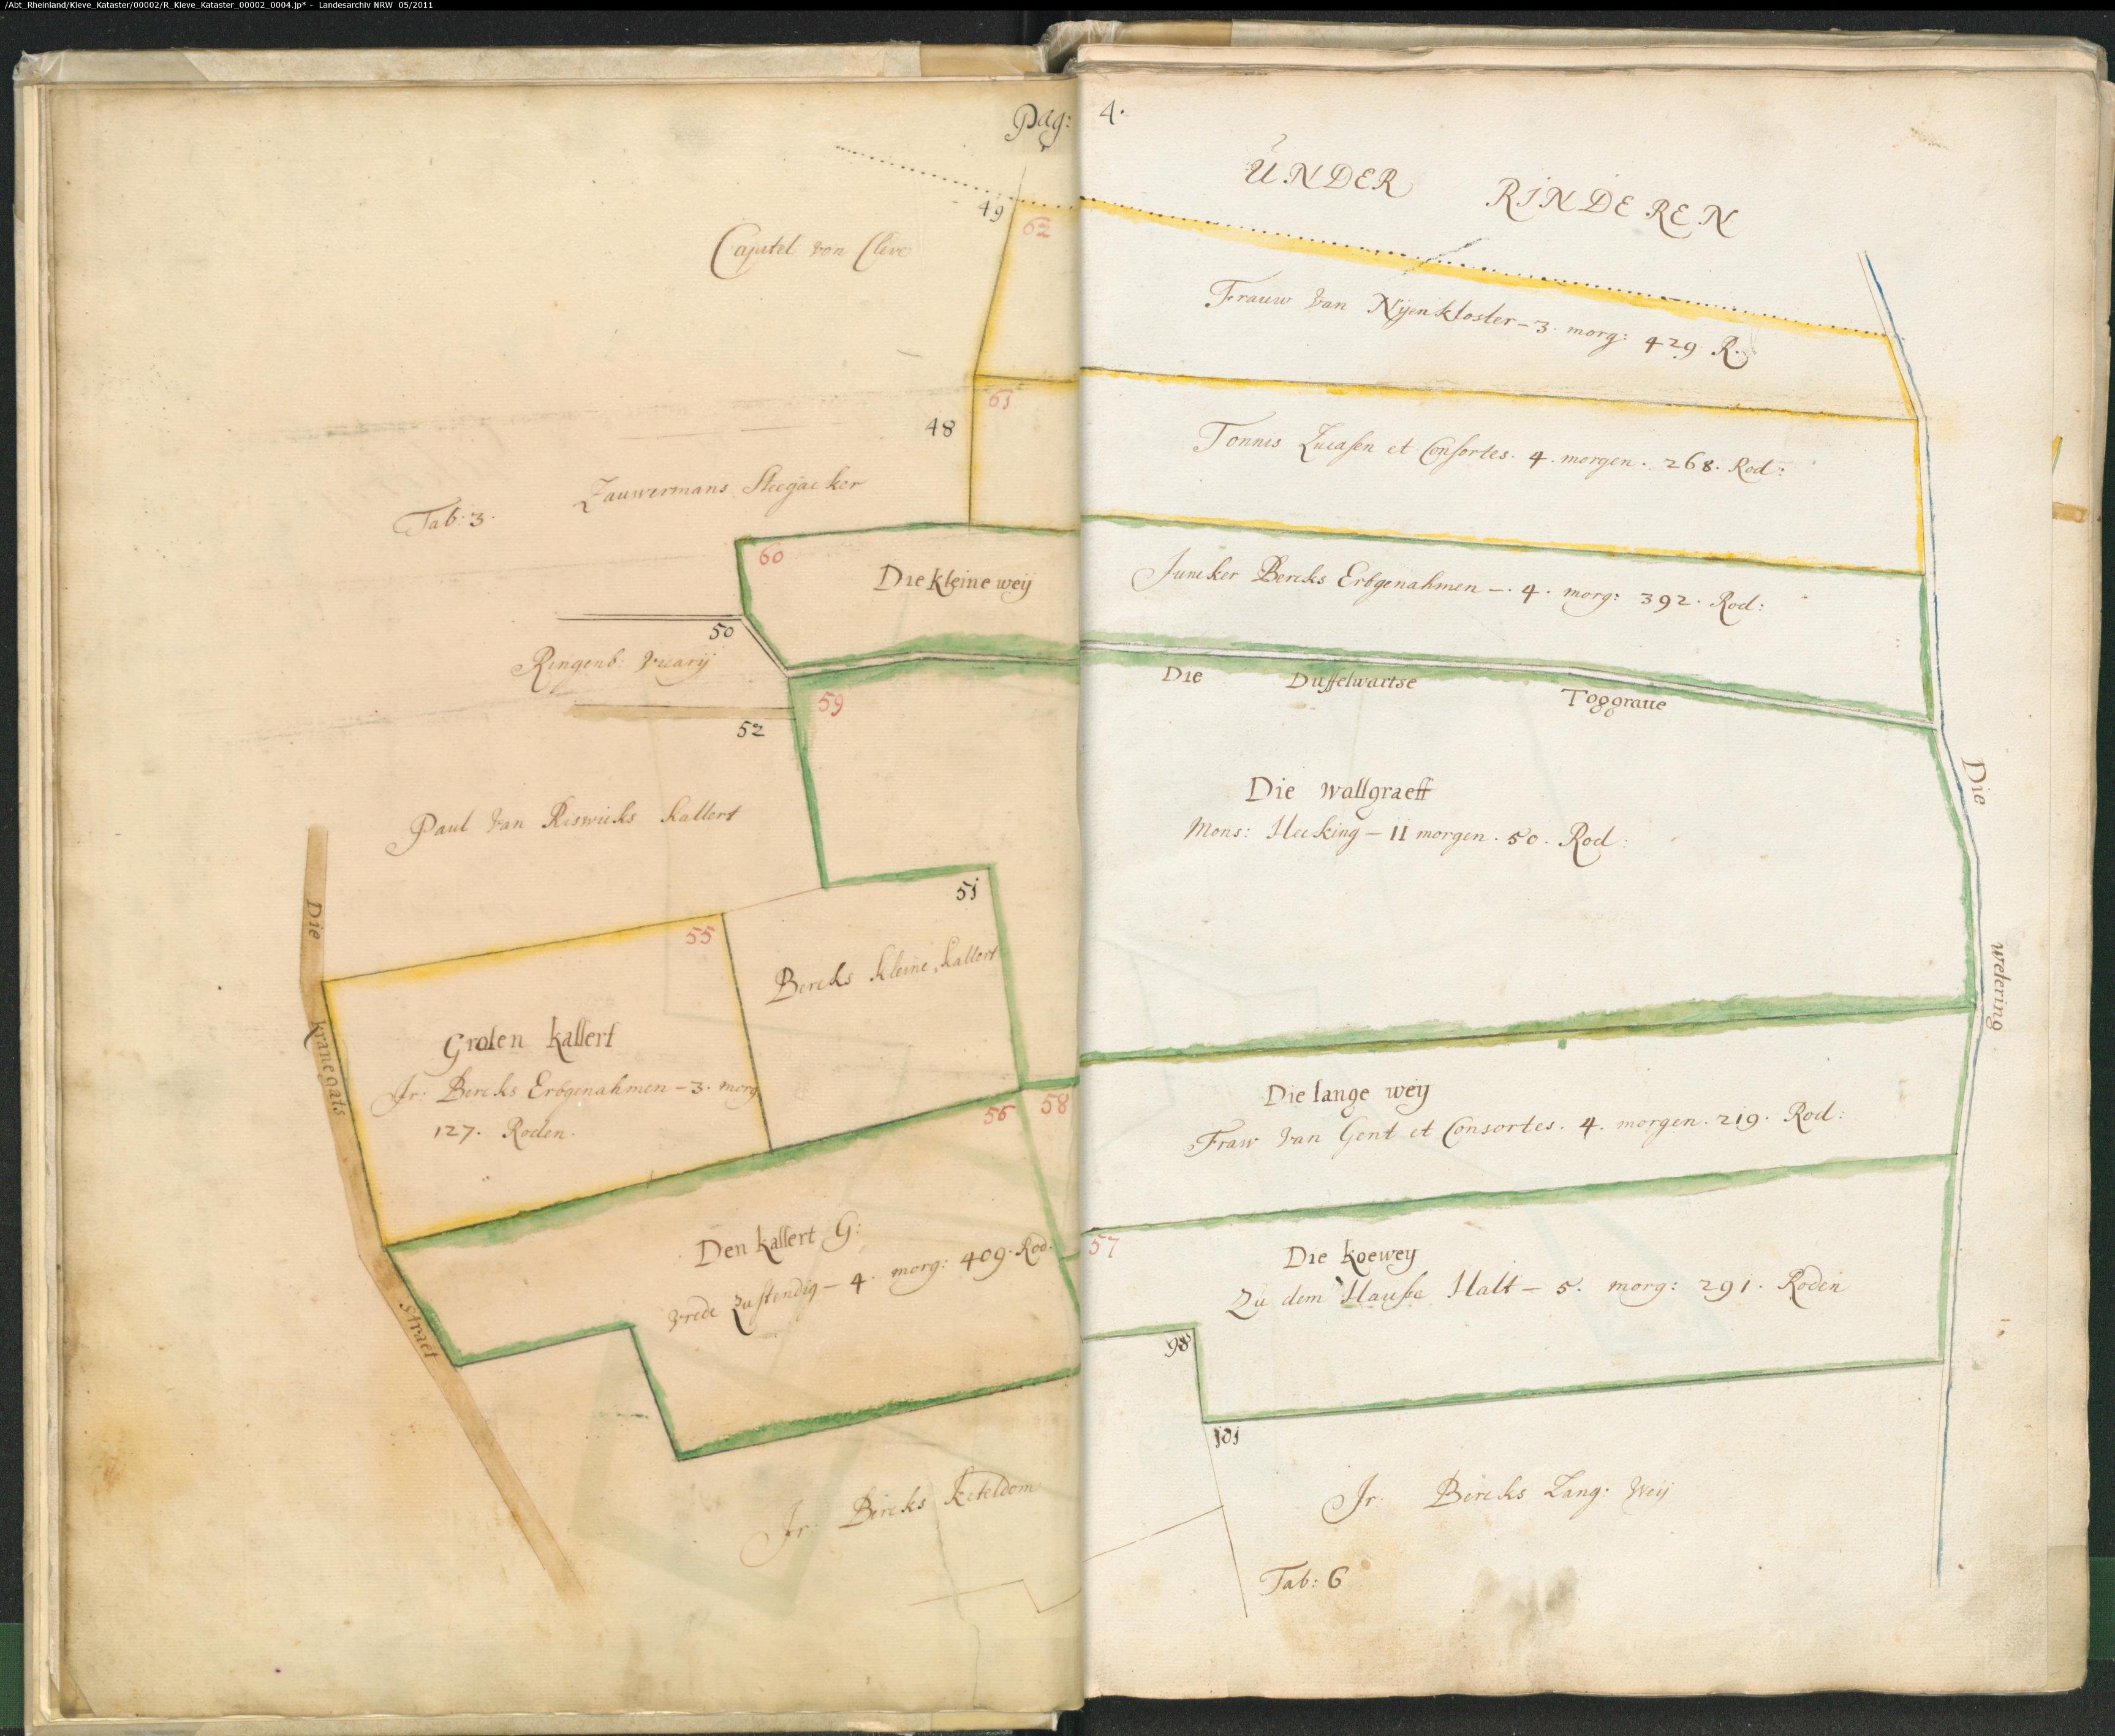 /Abt_Rheinland/Kleve_Kataster/00002/R_Kleve_Kataster_00002_0004.jp* - Landesarchiv NRW 05/2011
Pag: 4.
ÚNDER RINDEREN
49
62
Capitel von Cleve
Frauw van Nyenkloster – 3. morg: 429 R.
61
48
Tonnis Lucasen et Consortes. 4. morgen. 268. Rod:
Lauwermans Steegacker
Tab: 3.
60
Die kleine weij
Juncker Bercks Erbgenahmen –. 4. morg: 392. Rod:
50
Ringenb: vicarij
Die Duffelwartse Toggraue
59
52
Die wallgraeff
Mons: Hecking – 11 morgen. 50. Rod:
Paul van Riswicks kallert
Die wetering
51
55
Bercks kleine kallert
Die kranegats straet
Groten kallert
Jr: Bercks Erbgenahmen – 3. morg
127. Roden.
56
58
Die lange weij
Fraw van Gent et Consortes. 4. morgen. 219. Rod:
Den kallert G:
vrede zustendig – 4. morg: 409. Rod.
57
Die koewey
Zu dem Hause Halt – 5. morg: 291. Roden
98
101
Jr: Bercks Keteldom
Jr: Bercks Lang: Weij
Tab: 6